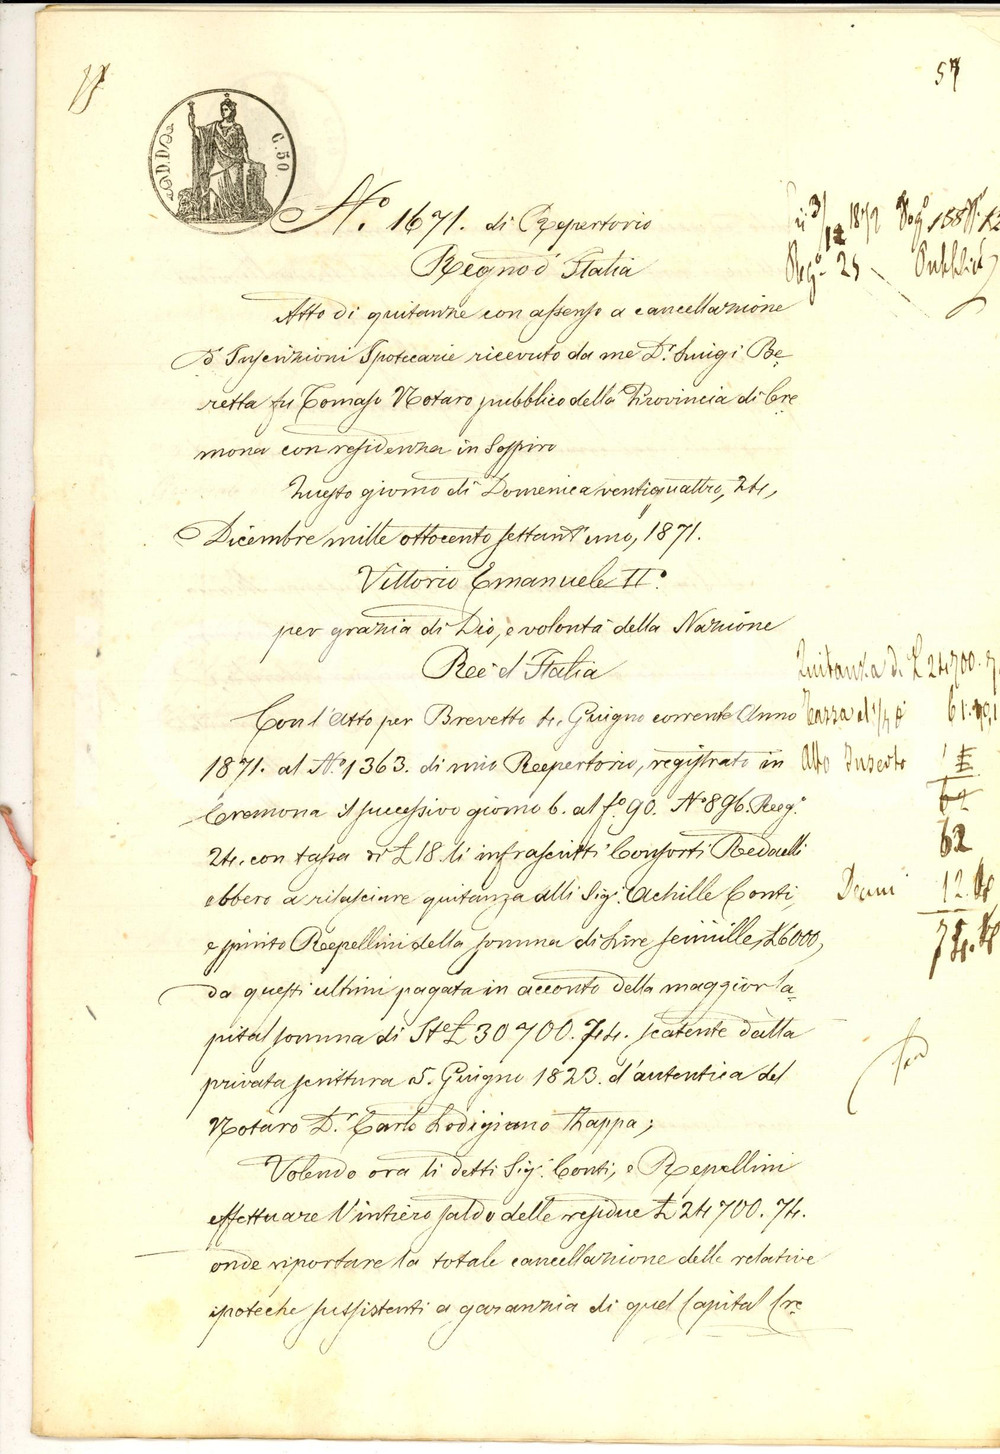 57
D.D.
C. 50.
N.º 1671. di Repertorio
Regno d'Italia
Atto di quitanze con assenso a cancellazione
d'Inscrizioni Ipotecarie ricevuto da me D.r Luigi Be=
retta fu Tomaso Notaro pubblico della Provincia di Cre
mona con residenza in Sospiro
Questo giorno di Domenica ventiquattro, 24,
Dicembre mille ottocento settant'uno, 1871.
Vittorio Emanuele II.º
per grazia di Dio, e volontà della Nazione
Re d'Italia
Con l'Atto per Brevetto 4. Giugno corrente Anno
1871. al N.º 1363. di mio Repertorio, registrato in
Cremona il successivo giorno 6. al f.º 90. N.º 896. Reg.º
24. con tassa di £ 18. li infrascritti Consorti Redaelli
ebbero a rilasciare quitanza alli Sig.i Achille Conti,
e Repellini della somma di Lire seimille, £ 6000,
da questi ultimi pagata in acconto della maggior Ca=
pital somma di It.e £ 30700.74. scatente dalla
privata scrittura 5. Giugno 1823. d'autentica del
Notaro D.r Carlo Lodigiano Zappa;
Volendo ora li detti Sig.i Conti, e Repellini
effettuare l'intiero saldo delle residue £ 24700.74.
onde riportare la totale cancellazione delle relative
ipoteche sussistenti a garanzia di quel Capital Cre
Reg.º 25
Pubblici
Quitanza di £ 24700.
Tassa
Atto Inserto
62
62
Decimi 12.
74.